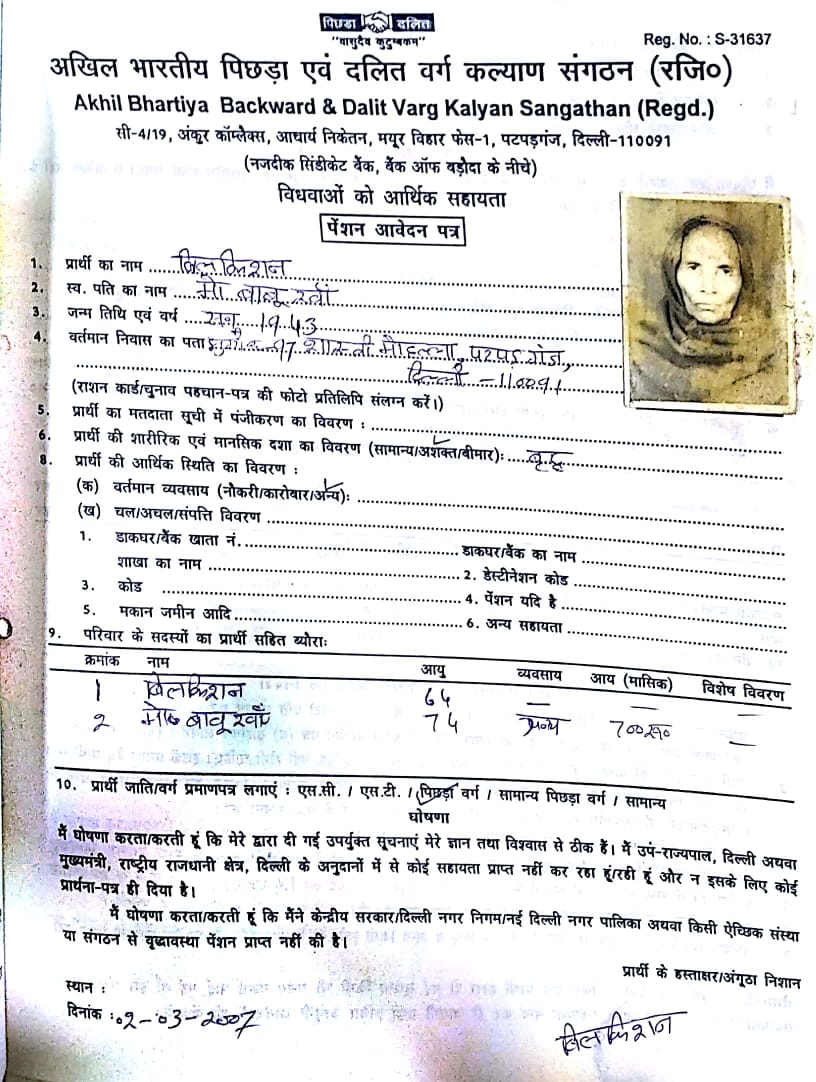 पिछड़ा दलित
"वासुदेव कुटुम्बकम"
Reg. No. : S-31637
अखिल भारतीय पिछड़ा एवं दलित वर्ग कल्याण संगठन (रजि०)
Akhil Bhartiya Backward & Dalit Varg Kalyan Sangathan (Regd.)
सी-4/19, अंकुर कॉम्लैक्स, आचार्य निकेतन, मयूर विहार फेस-1, पटपड़गंज, दिल्ली-110091
(नजदीक सिंडीकेट बैंक, बैंक ऑफ बड़ौदा के नीचे)
विधवाओं को आर्थिक सहायता
पेंशन आवेदन पत्र
1. प्रार्थी का नाम ..... बिलकिशन
2. स्व. पति का नाम ..... मो बाबू खाँ
3. जन्म तिथि एवं वर्ष ..... सन् 1943
4. वर्तमान निवास का पता 97 शास्त्री मौहल्ला, पटपड़ गंज,
दिल्ली - 110091
(राशन कार्ड/चुनाव पहचान-पत्र की फोटो प्रतिलिपि संलग्न करें।)
5. प्रार्थी का मतदाता सूची में पंजीकरण का विवरण :
6. प्रार्थी की शारीरिक एवं मानसिक दशा का विवरण (सामान्य/अशक्त/बीमार): ..... वृद्ध
8. प्रार्थी की आर्थिक स्थिति का विवरण :
(क) वर्तमान व्यवसाय (नौकरी/कारोबार/अन्य):
(ख) चल/अचल/संपत्ति विवरण
1. डाकघर/बैंक खाता नं. ..... डाकघर/बैंक का नाम
शाखा का नाम ..... 2. डेस्टीनेशन कोड
3. कोड ..... 4. पेंशन यदि है
5. मकान जमीन आदि ..... 6. अन्य सहायता
9. परिवार के सदस्यों का प्रार्थी सहित ब्यौराः
क्रमांक नाम आयु व्यवसाय आय (मासिक) विशेष विवरण
1 बिलकिशन 64 — — —
2 मो० बाबू खाँ 74 अन्य 700रू0 —
10. प्रार्थी जाति/वर्ग प्रमाणपत्र लगाएं : एस.सी. / एस.टी. / पिछड़ा वर्ग / सामान्य पिछड़ा वर्ग / सामान्य
घोषणा
मैं घोषणा करता/करती हूं कि मेरे द्वारा दी गई उपर्युक्त सूचनाएं मेरे ज्ञान तथा विश्वास से ठीक हैं। मैं उप-राज्यपाल, दिल्ली अथवा
मुख्यमंत्री, राष्ट्रीय राजधानी क्षेत्र, दिल्ली के अनुदानों में से कोई सहायता प्राप्त नहीं कर रहा हूं/रही हूं और न इसके लिए कोई
प्रार्थना-पत्र ही दिया है।
मैं घोषणा करता/करती हूं कि मैंने केन्द्रीय सरकार/दिल्ली नगर निगम/नई दिल्ली नगर पालिका अथवा किसी ऐच्छिक संस्था
या संगठन से वृद्धावस्था पेंशन प्राप्त नहीं की है।
प्रार्थी के हस्ताक्षर/अंगूठा निशान
स्थान :
दिनांक : 02-03-2007
बिलकिशन